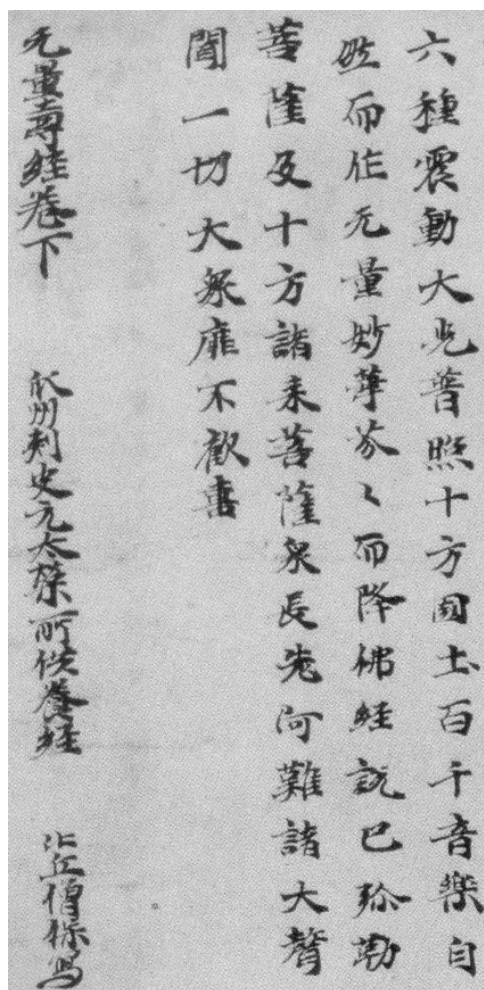 六種震動大光普照十方國土百千音樂自
然而作无量妙華芬〻而降佛經説已弥勒
菩薩及十方諸来菩薩衆長老阿難諸大聲
聞一切大衆靡不歡喜
无量壽經卷下 瓜州刾史元太榮所供養經 比丘僧保寫